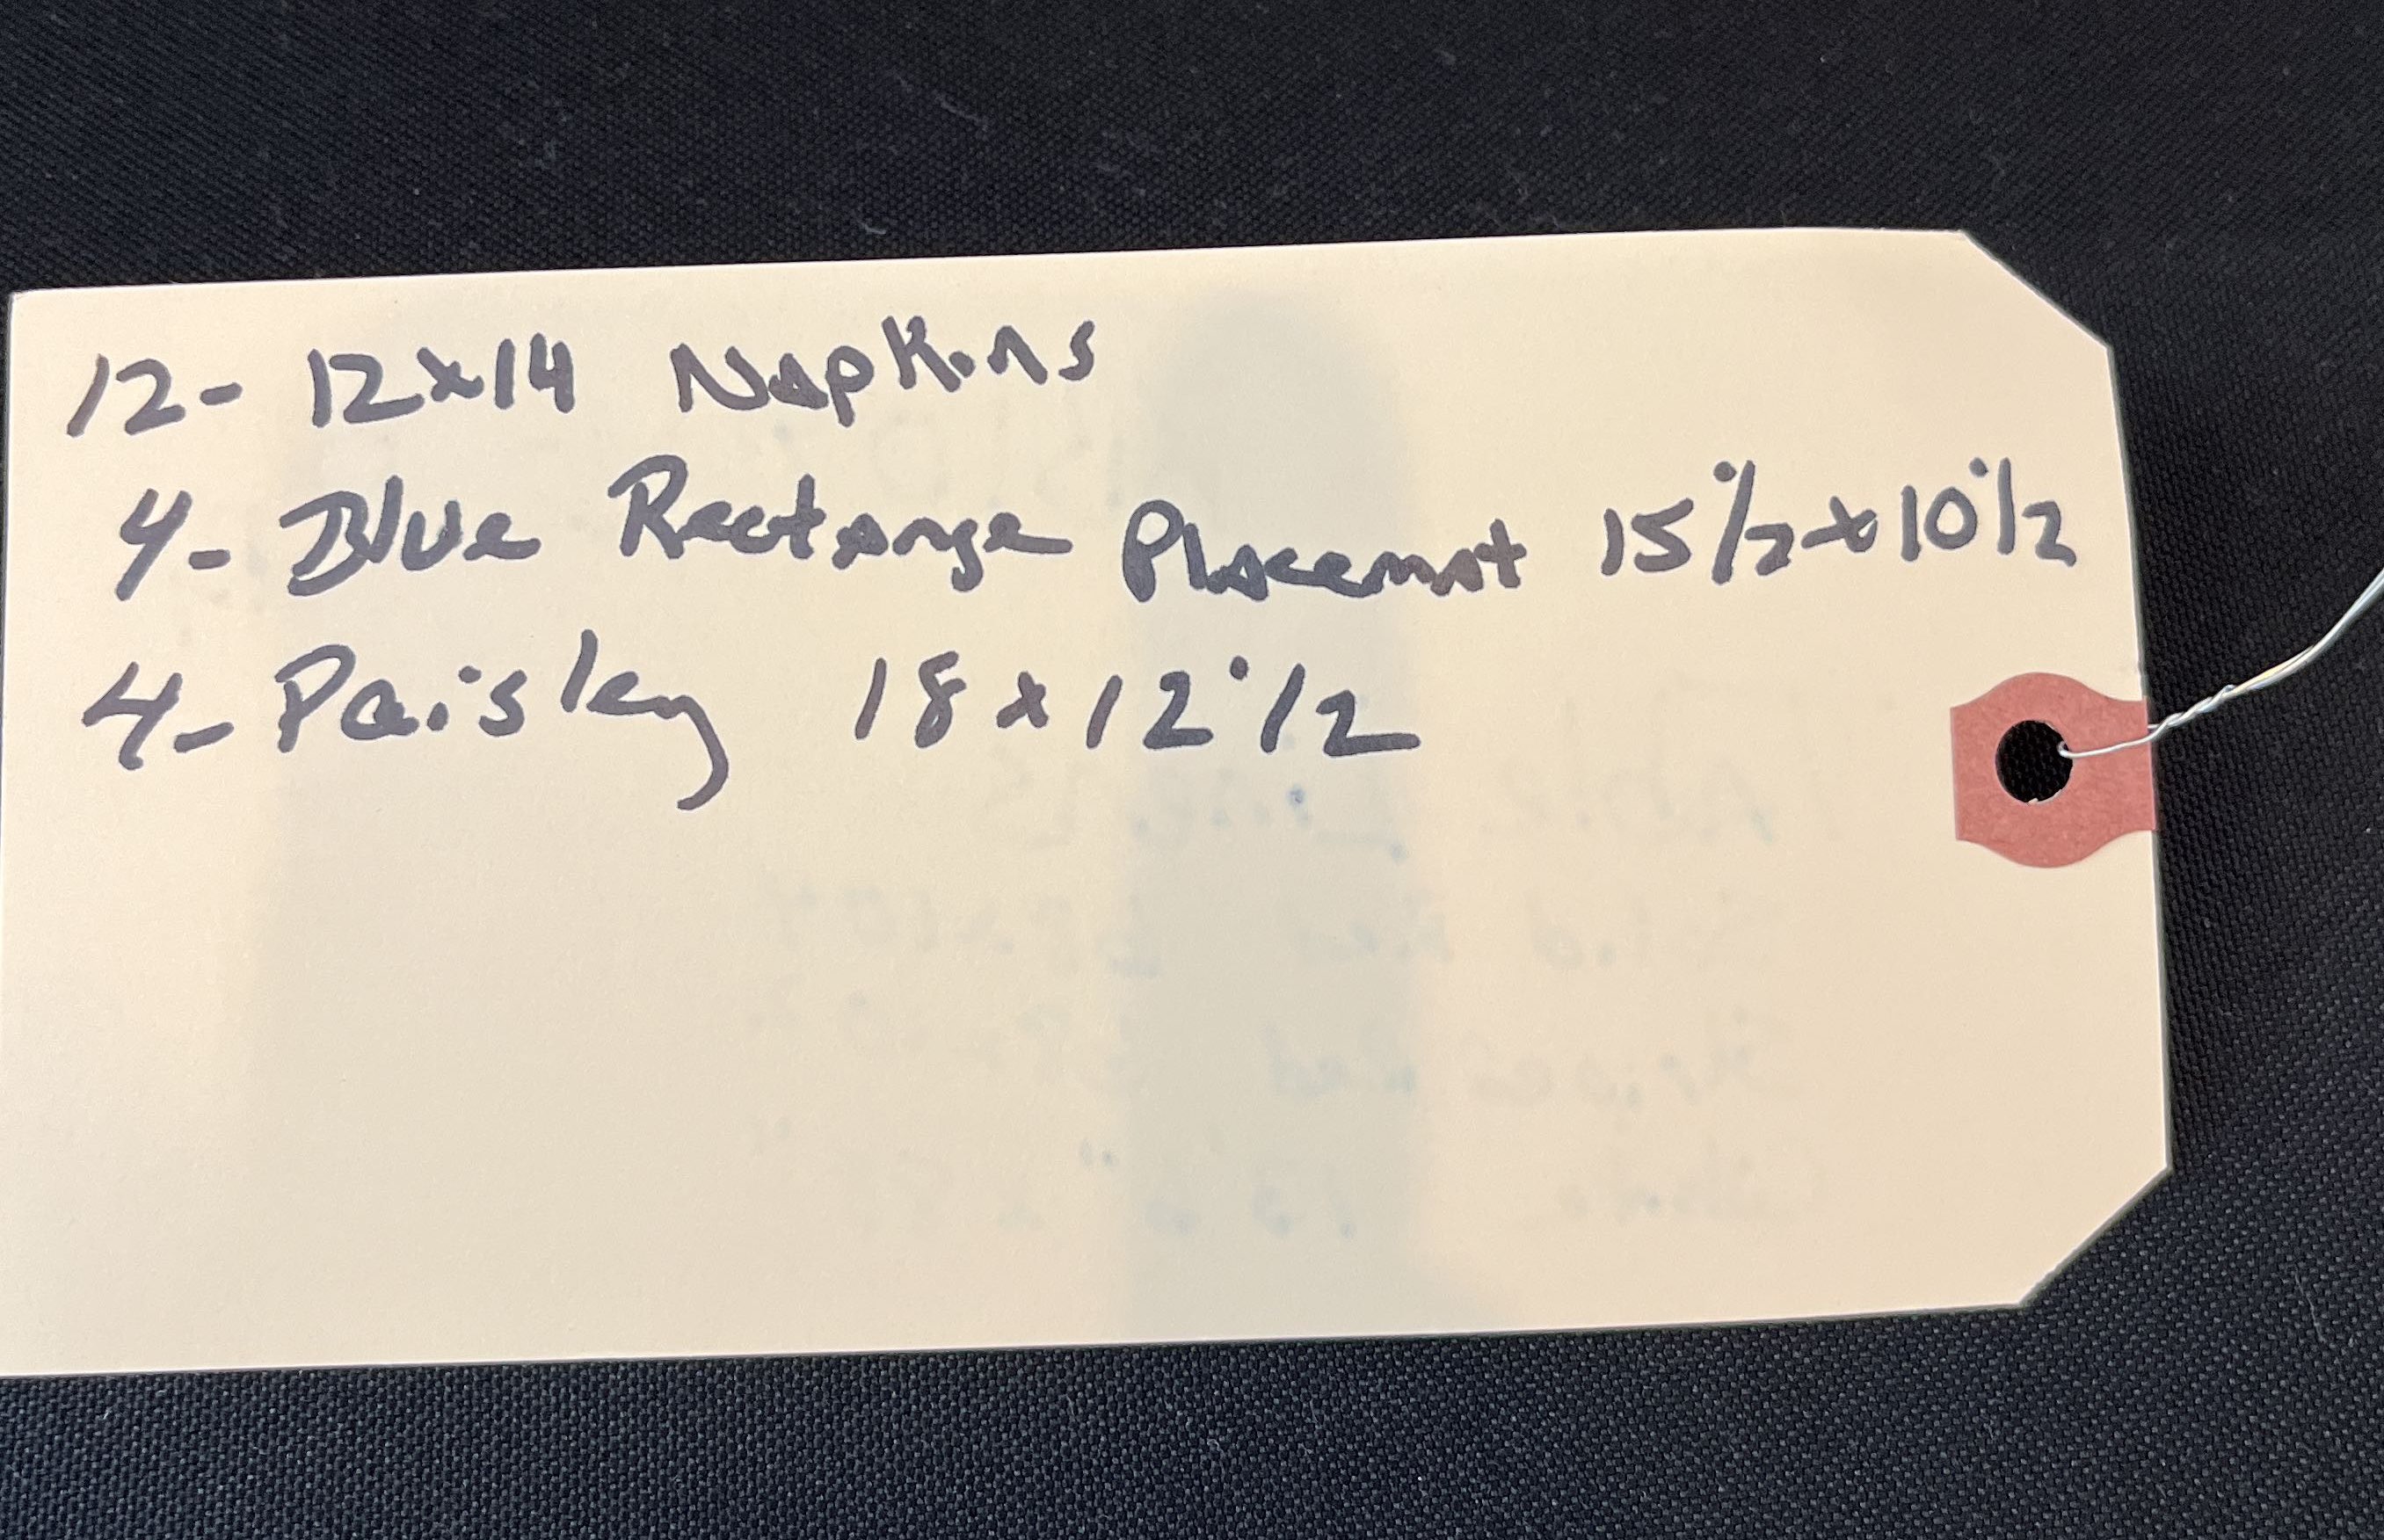 12- 12x14 Napkins
4- Blue Rectange Placemat 15 1/2 x 10 1/2
4- Paisley 18 x 12 1/2